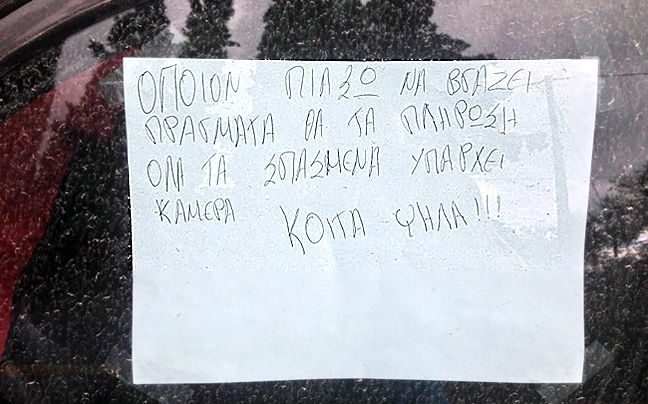 ΟΠΟΙΟΝ ΠΙΑΣΩ ΝΑ ΒΓΑΖΕΙ
ΠΡΑΓΜΑΤΑ ΘΑ ΤΑ ΠΛΗΡΩΣΗ
ΟΛΑ ΤΑ ΣΠΑΣΜΕΝΑ ΥΠΑΡΧΕΙ
ΚΑΜΕΡΑ ΚΟΙΤΑ ΨΗΛΑ!!!